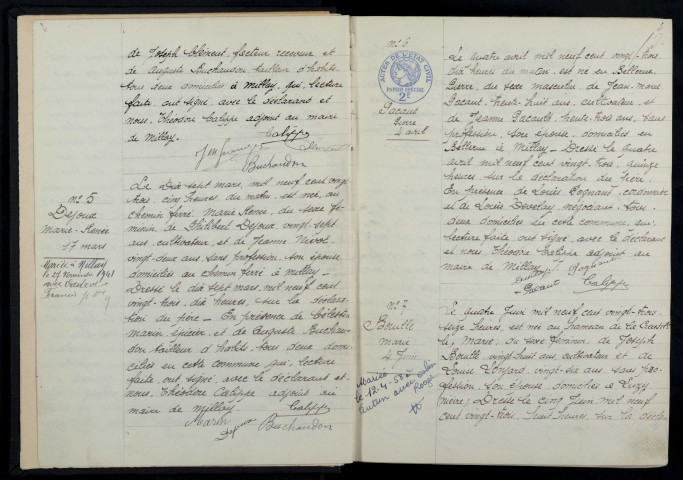 de Joseph Clément, facteur receveur et
de Auguste Buchaudon tailleur d'habits
tous deux domiciliés à Millay, qui, lecture
faite, ont signé avec le déclarant et
nous, Théodore Calippe adjoint au maire
de Millay.
Calippe
Buchaudon
n° 5
Dejoux
Marie-Renée
17 mars
Mariée à Millay
le 27 novembre 1941
avec
Francis
Le Dix sept mars, mil neuf cent vingt
trois, cinq heures du matin, est née, au
chemin ferré, Marie Renée, du sexe fé-
minin, de Philibert Dejoux, vingt sept
ans, cultivateur et de Jeanne
vingt-deux ans, sans profession, son épouse,
domiciliés au chemin ferré à Millay —
Dressé le dix sept mars, mil neuf cent
vingt-trois, dix heures, sur la déclara-
tion du père — En présence de Célestin
Marin, épicier et de Auguste Buchau-
don tailleur d'habits, tous deux domi-
ciliés en cette commune qui, lecture
faite, ont signé, avec le déclarant et
nous, Théodore Calippe, adjoint au
maire de Millay.
Calippe
Marin
Dejoux
Buchaudon
n° 6
ACTES DE L'ÉTAT CIVIL
PAPIER SPÉCIAL
2F
Pacaut
Pierre
4 avril
Le quatre avril mil neuf cent vingt-trois
dix heures du matin, est né en
Pierre, du sexe masculin, de Jean-Marie
Pacaut, trente-huit ans, cultivateur, et
de Jeanne trente-trois ans, sans
profession, son épouse, domiciliés en
à Millay — Dressé le quatre
avril mil neuf cent vingt-trois, quinze
heures sur la déclaration du père.
En présence de Louis Cognant, cordonnier
et de Louis négociant, tous
deux domiciliés en cette commune qui,
lecture faite ont signé, avec le déclarant
et nous, Théodore Calippe adjoint au
maire de Millay.
Cognant
Pacaut
Calippe
n° 7
Bouille
Marie
4 Juin
Mariée
le 12-4-58 à
Autun avec
Roger
Le quatre Juin mil neuf cent vingt-trois
seize heures, est née au hameau de La
Marie, du sexe féminin, de Joseph
Bouille vingt huit ans, cultivateur et de
Louise vingt-six ans, sans pro-
fession, son épouse, domiciliés à
Dressé le cinq Juin mil neuf
cent vingt-trois, huit heures, sur la décla-